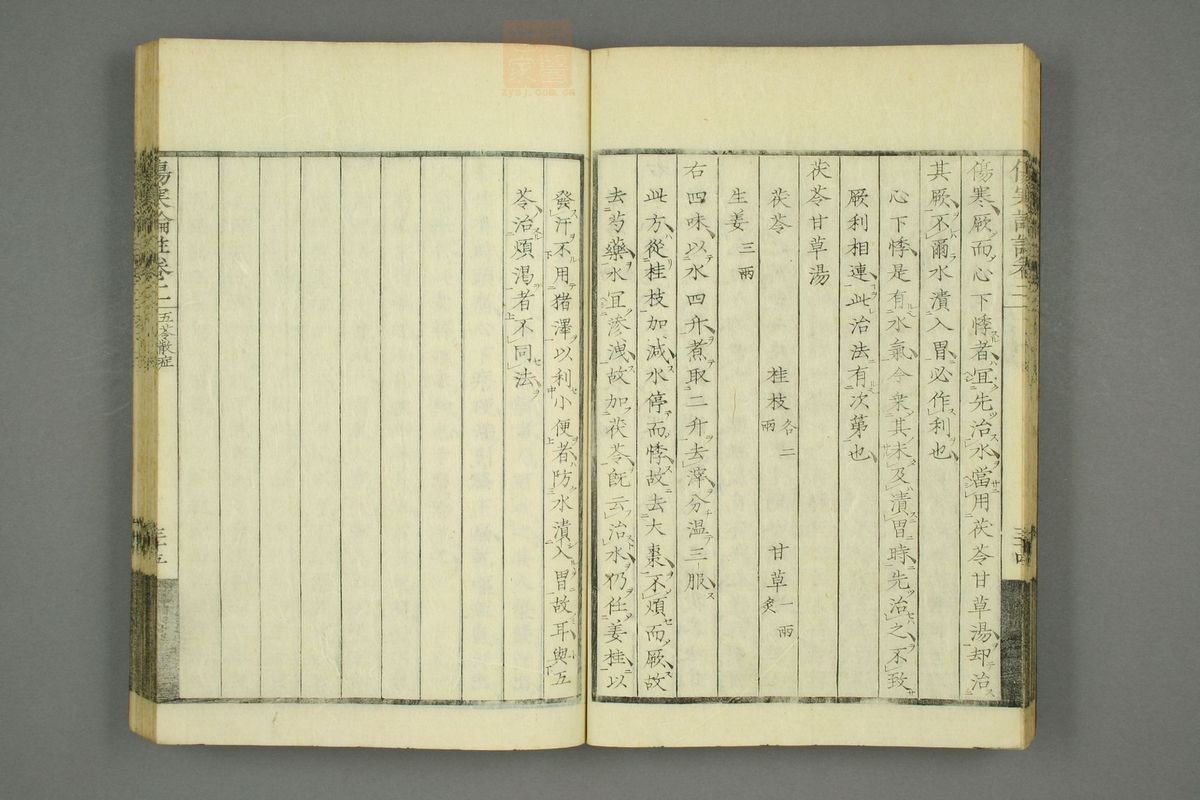 傷寒厥而心下悸者冝先治水當用茯苓甘草湯却治
其厥不爾水漬入胃必作利也
心下悸是有水氣今乗其未及漬胃時先治之不致
厥利相連此治法有次苐也
茯苓甘草湯
茯苓 桂枝各二兩 甘草一兩炙
生姜三兩
右四味以水四升煮取二升去滓分温三服
此方從桂枝加減水停而悸故去大棗不煩而厥故
去芍藥水冝滲洩故加茯苓既云治水仍任姜桂以
發汗不用猪澤以利小便者防水漬入胃故耳與五
苓治煩渇者不同法
傷寒論註卷二 五苓散症